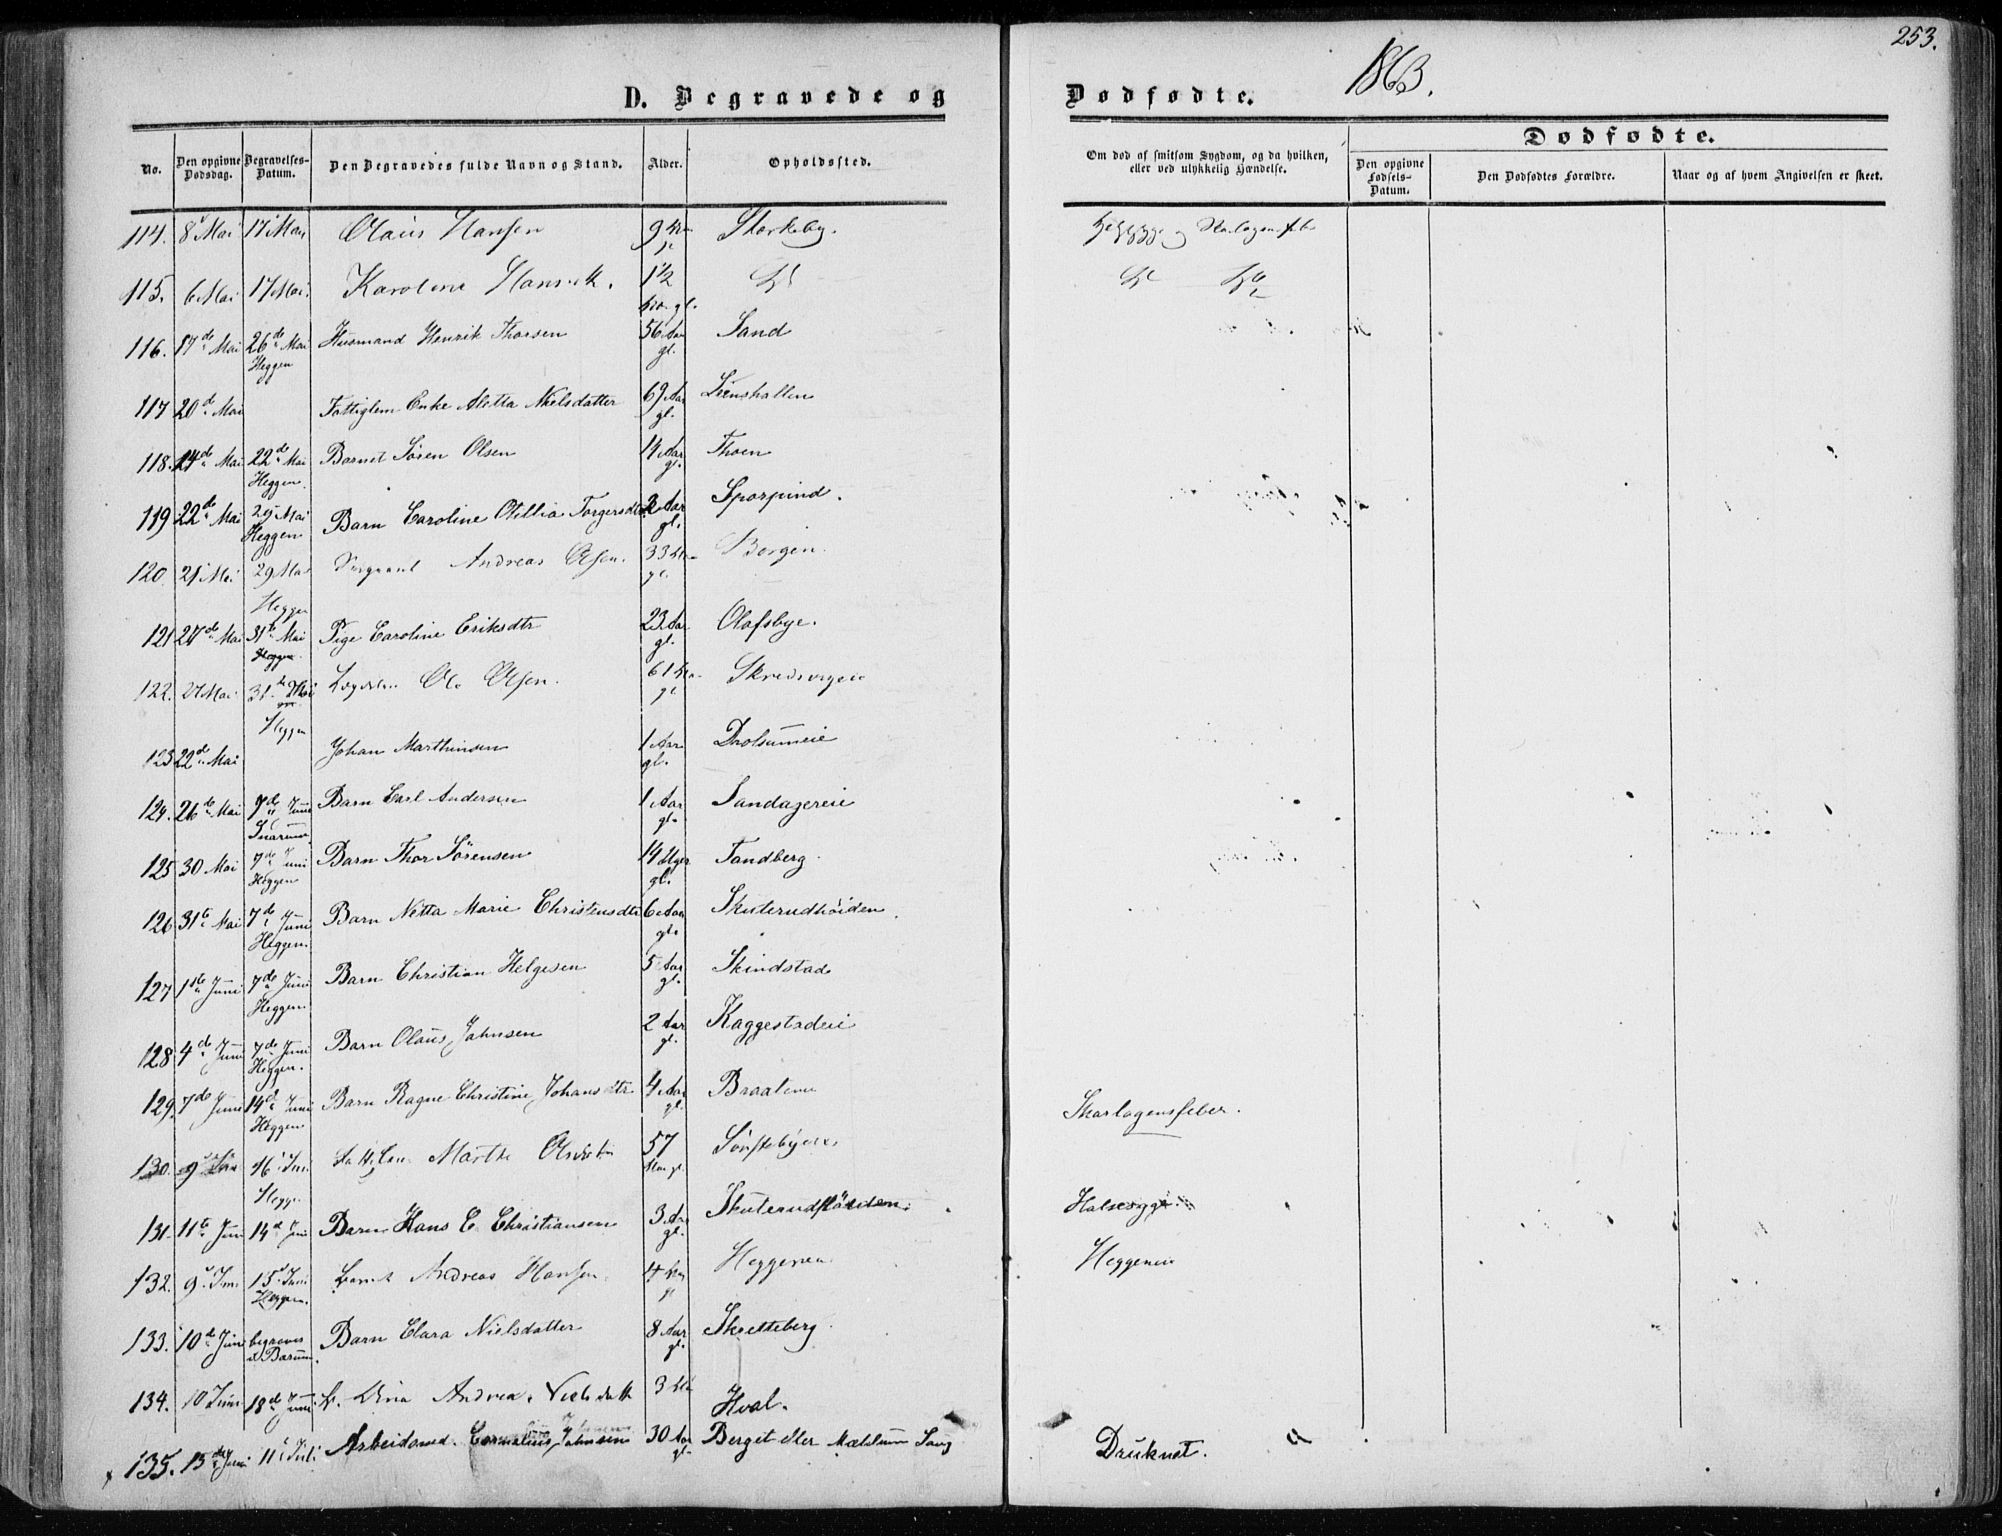 253.
1863.
D. Begravede og
Dødfødte.
No.
Den opgivne Dødsdag.
Begravelses-Datum.
Den Begravedes fulde Navn og Stand.
Alder.
Opholdssted.
Om død af smitsom Sygdom, og da hvilken, eller ved ulykkelig Hændelse.
Dødfødte.
Den opgivne Fødsels-Datum.
Den Dødfødtes Forældre.
Naar og af hvem Angivelsen er skeet.
114. 8 Mai 17 Mai Olaus Hansen 9
115. 6 Mai 17 Mai Karoline 1½
116. 17de Mai 26de Mai Heggen Husmand Henrik Thorsen 56 Aar gl. Sand
117 20de Mai Fattiglem Enke Aletta Nielsdatter 69 Aar gl.
118. 14de Mai 22de Mai Heggen. Barnet Sören Olsen 14 Aar gl. Thoen
119 22de Mai 29 Mai Heggen Barn Caroline Otillia Torgersdtr 2 Aar gl. Sporpind.
120. 21 Mai 29 Mai Heggen Andreas Olsen. 33 Borgen.
121 27de Mai 31te Mai Heggen Pige Caroline Eriksdtr 23 Aar gl. Olafsbye.
122. 27 Mai 31te Mai Heggen Ole Olsen. 61
123 22de Mai Johan Marthinsen 1 Aar gl. Drolsumeie
124. 26de Mai 7de Juni Snarum Barn Carl Andersen 1 Aar gl. Sandagereie
125 30 Mai 7de Juni Heggen Barn Thor Sörensen 14 Uger gl. Tandberg.
126 31te Mai 7de Juni Heggen. Barn Netta Marie Christensdtr 6 Aar gl. Skuterudhöiden.
127 1ste Juni 7de Juni Heggen. Barn Christian Helgesen 5 Aar gl. Skindstad
128 4de Juni 7de Juni Heggen. Barn Olaus Jahnsen 2 Aar gl. Kaggestadeie
129. 7de Juni 14de Juni Heggen Barn Ragne Christine Johansdtr 4 Aar gl. Braatene Skarlagensfeber.
130. 9 Juni 16 Juni Marthe 57
131. 11te Juni 14d Juni Barn Hans E. Christiansen 3 Aar gl. Halssyge.
132. 9 Juni 15 Juni Heggen. Andreas Hansen. 4 Heggeneie
133. 10de Juni begraves Barn Clara Nielsdatter 8 Aar gl. Skretteberg.
134. 10 Juni 18de Juni. Andrea 3 Hval.
135. 15de Juni 11 Juli Arbeidsmd. Cornelius Jahnsen 30 Aar gl. Berget eller Druknet.